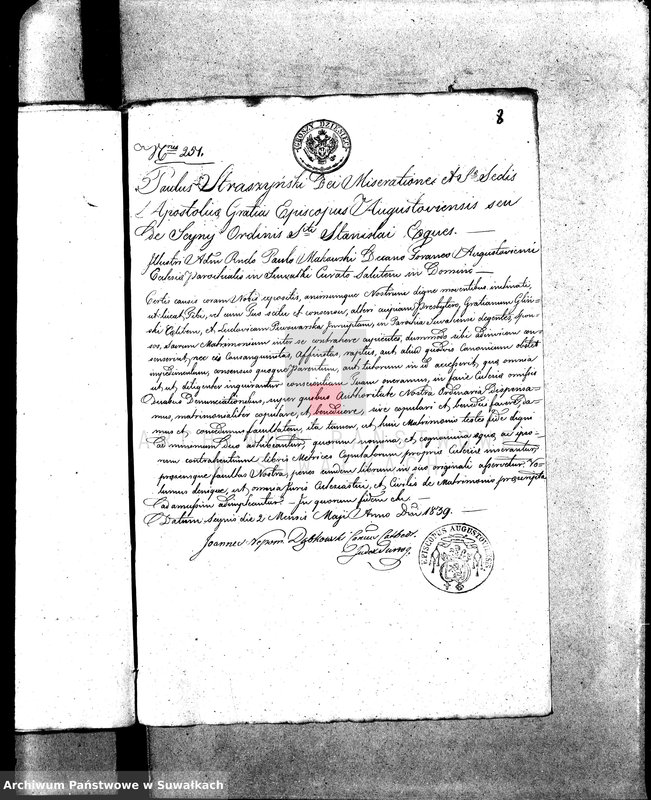 8
Nrus 251.
GROSZY DZIESIĘĆ
Paulus Straszyński Dei Miseratione et S. Sedis
Apostolicæ Gratia Episcopus Augustoviensis seu
de Seyny Ordinis Sti Stanislai Eques. —
Illustri Adm Rndo Paulo Makowski Decano Foraneo Augustoviensi
Ecclesiæ parochialis in Suwałki Curato Salutem in Domino —
Certis causis coram Nobis expositis, animumque Nostrum digne moventibus inclinati,
ut liceat Tibi, vel cum Tuo scitu et consensu, alteri cuipiam Presbytero, Gratianum
Cælibem, et Ludovicam innuptam, in Parochia Suvalensi degentes, spon-
sos, darum Matrimonium inter se contrahere cupientes, dummodo ubi
nec eis Consanguinitas, Affinitas, raptus, aut aliud quodvis Canonicum obstet
impedimentum, consensus quoque Parentum, aut tutorum in id accesserit, quæ omnia
ut diligenter inquirantur conscientiam Tuam oneramus, in facie Ecclesiæ omissis
Denuntiationibus, super quibus Authoritate Nostra Ordinaria Dispensa-
mus, matrimonialiter copulare, et benedicere, sive copulari et benedici facere, da-
mus et concedimus facultatem, ita tamen, ut huic Matrimonio testes fide digni
ad minimum duo adhibeantur, quorum nomina, et cognomina æque, ac ipso-
rum contrahentium libris Metrices Copulatorum propriæ Ecclesiæ inserantur,
præsensque facultas Nostra, penes eundem librum in suo originali asservetur. Vo-
lumus denique, ut omnia Juris Ecclesiastici, et Civilis de Matrimonio præscripta
ad amussim adimpleantur. In quorum fidem etc. —
Datum Seynis die 2 Mensis Maji Anno Dni 1839. —
Joannes Nepom Dąbkowski
Judex Surrog.
EPISCOPUS AUGUSTOVIENSIS
Archiwum Państwowe w Suwałkach